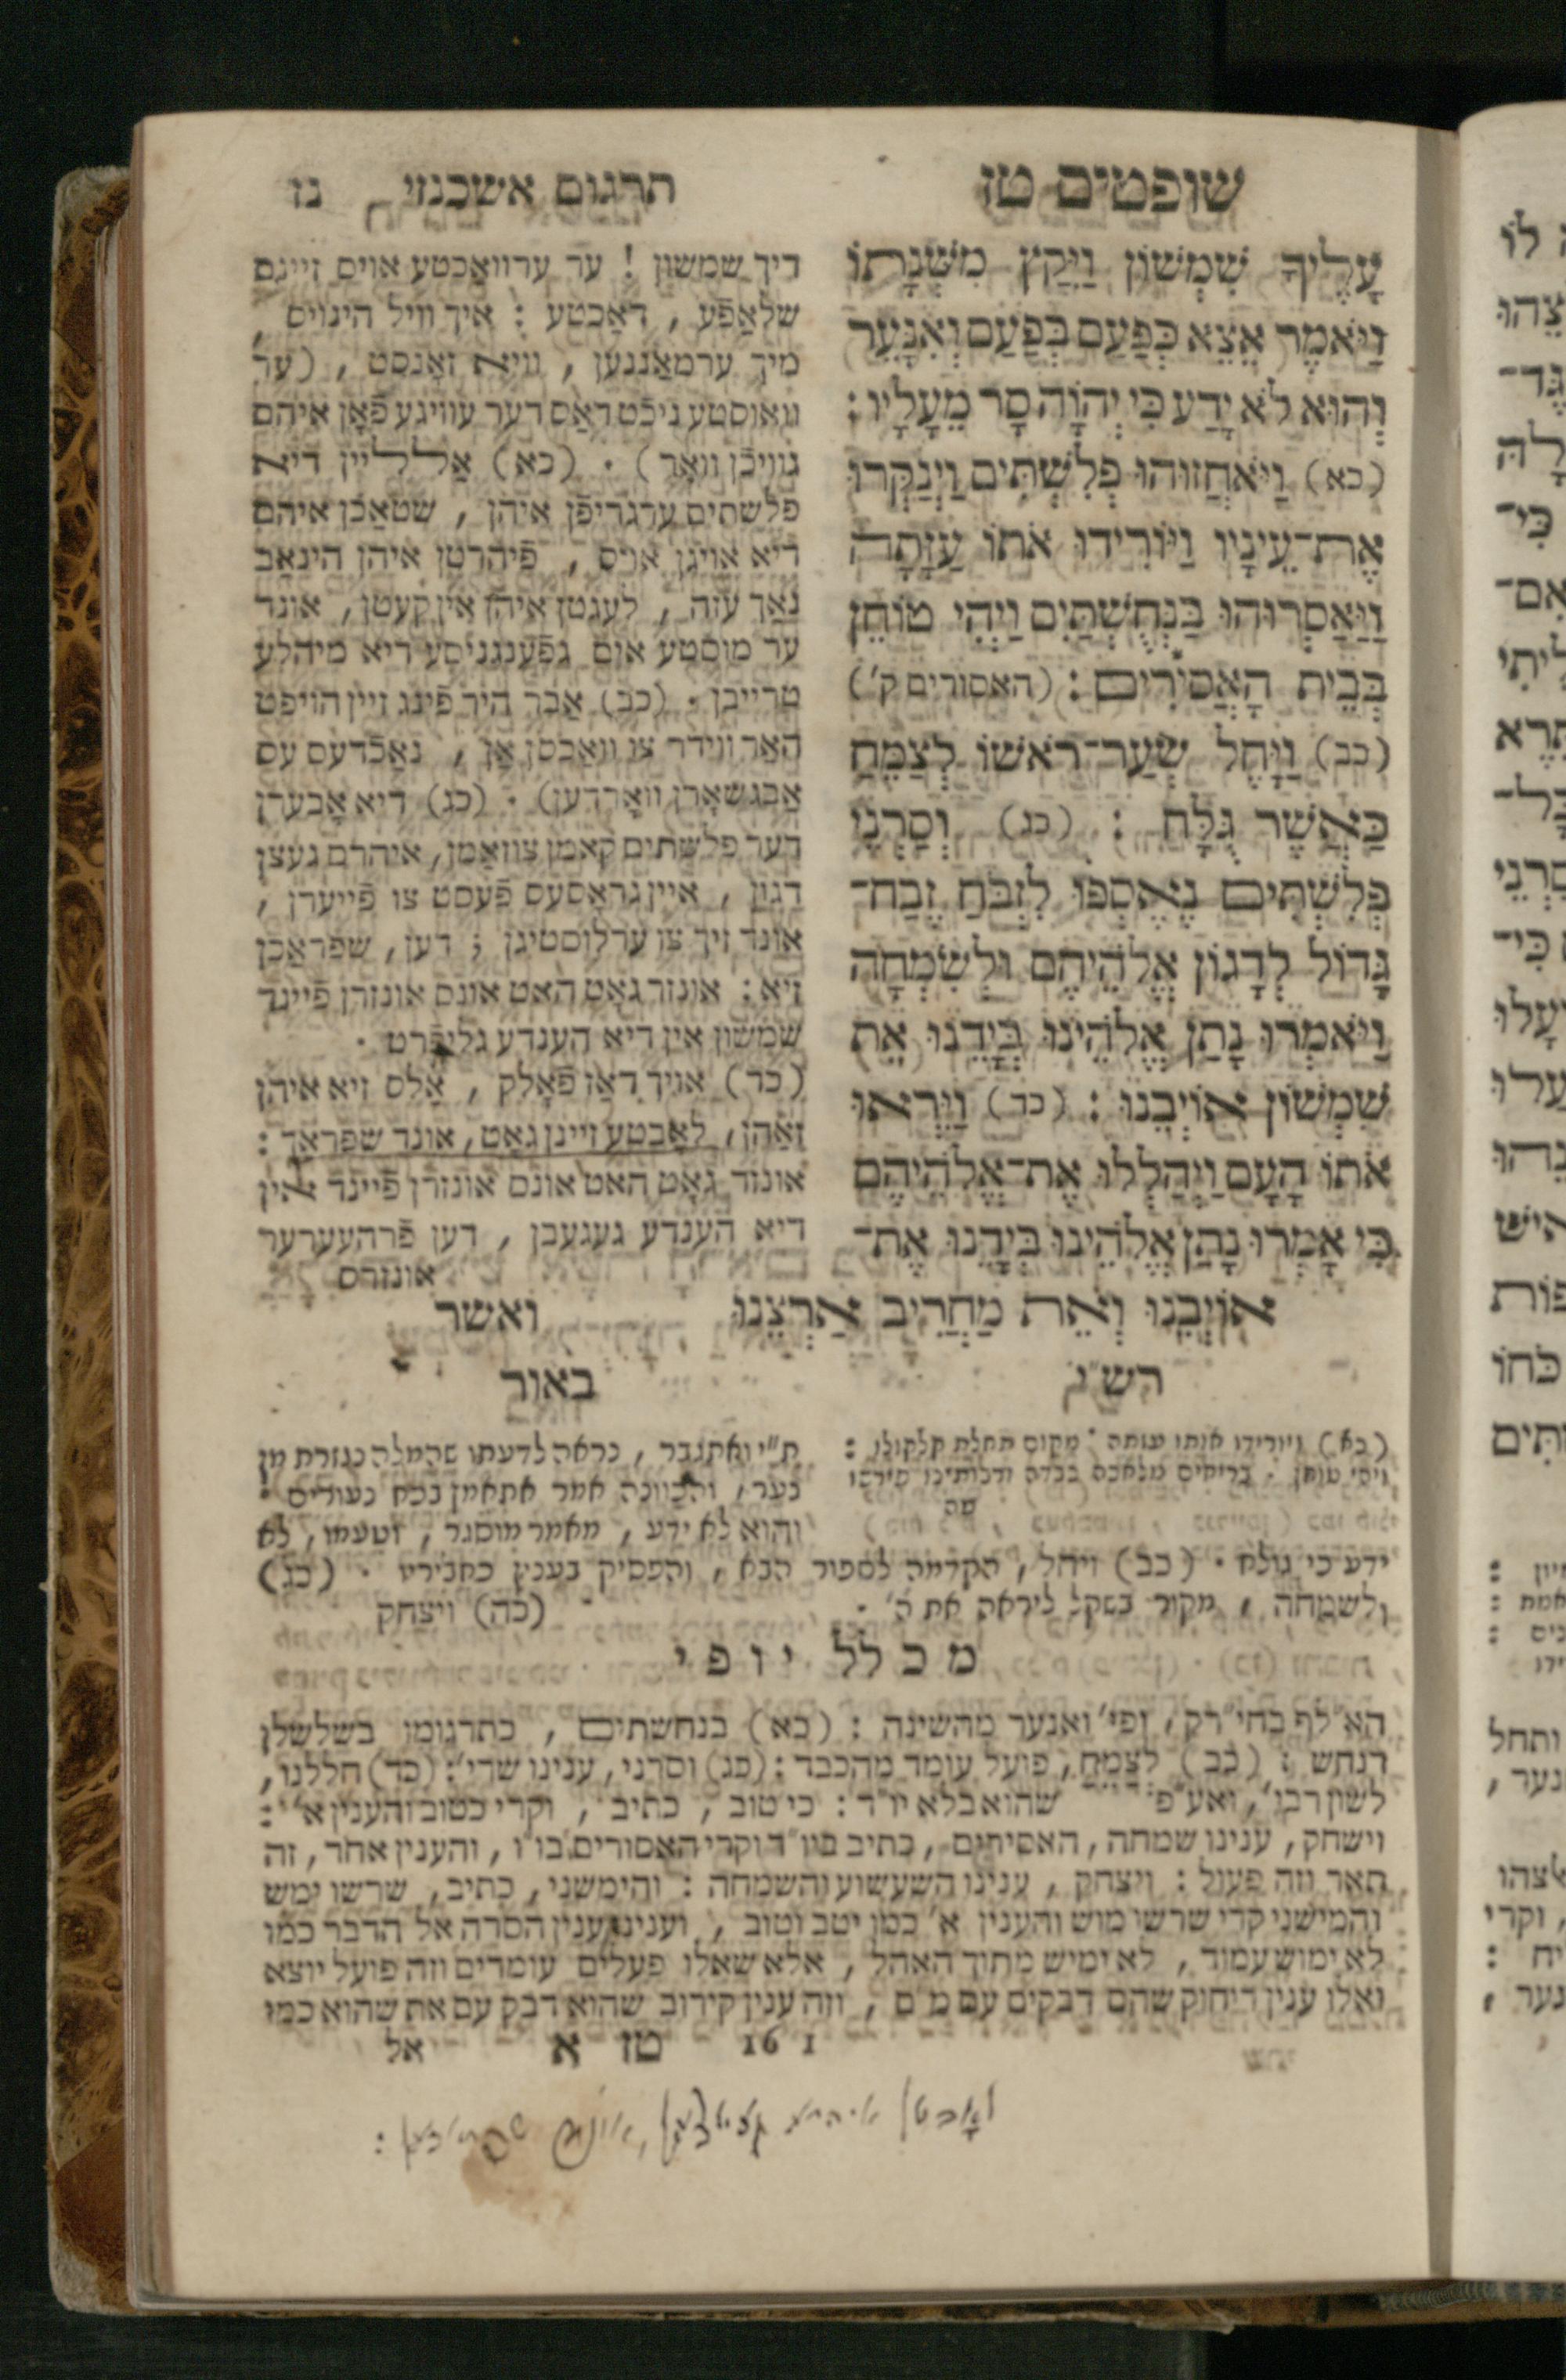 שופטים טז
תרגום אשכנזי
נז
עָלֶיךָ שִׁמְשׁוֹן וַיִּקַץ מִשְּׁנָתוֹ
וַיֹּאמֶר אֵצֵא כְּפַעַם בְּפַעַם וְאִנָּעֵר
וְהוּא לֹא יָדַע כִּי יְהוָֹה סָר מֵעָלָיו :
(כא) וַיֹּאחֲזוּהוּ פְלִשְׁתִּים וַיְנַקְּרוּ
אֶת־עֵינָיו וַיּוֹרִידוּ אֹתוֹ עַזָּתָה
וַיַּאַסְרוּהוּ בַּנְחֻשְׁתַּיִם וַיְהִי טוֹחֵן
בְּבֵית הָאֲסִירִים : (האסורים ק')
(כב) וַיָּחֶל שְׂעַר־רֹאשׁוֹ לְצַמֵּחַ
כַּאֲשֶׁר גֻּלָּח : (כג) וְסַרְנֵי
פְלִשְׁתִּים נֶאֱסְפוּ לִזְבֹּחַ זֶבַח־
גָּדוֹל לְדָגוֹן אֱלֹהֵיהֶם וּלְשִׂמְחָה
וַיֹּאמְרוּ נָתַן אֱלֹהֵינוּ בְּיָדֵנוּ אֵת
שִׁמְשׁוֹן אוֹיְבֵנוּ : (כד) וַיִּרְאוּ
אֹתוֹ הָעָם וַיְהַלְלוּ אֶת־אֱלֹהֵיהֶם
כִּי אָמְרוּ נָתַן אֱלֹהֵינוּ בְיָדֵנוּ אֶת־
אוֹיְבֵנוּ וְאֵת מַחֲרִיב אַרְצֵנוּ
ואשר
דיך שמשון ! ער ערוואַכטע אויס זיינם
שלאַפֿע , דאַכטע : איך וויל הינויס ,
מיך ערמאַננען , וויא זאָנסט , (ער
וואוסטע ניכֿט דאַס דער עוויגע פֿאָן איהם
געוויכֿן וואַר) . (כא) אַלליין דיא
פלשתים ערגריפֿן איהן , שטאַכֿן איהם
דיא אויגן אויס , פֿיהרטן איהן הינאַב
נאַך עזה , לעגטן איהן אין קעטן , אונד
ער מוסטע אים גפֿענגניסע דיא מיהלע
טרייבן . (כב) אַבר היר פֿינג זיין הויפט
האַר ווידר צו וואַכסן אַן , נאַכֿדעם עס
אַבגשאָרן וואָרדען) . (כג) דיא אָבערן
דער פלשתים קאמן צוזאַמן, איהרם געצן
דגון , איין גראָסעס פֿעסט צו פֿייערן ,
אונד זיך צו ערלוסטיגן ; דען , שפראַכֿן
זיא : אונזר גאָט האט אונס אונזרן פֿיינד
שמשון אין דיא הענדע גליפֿרט .
(כד) אויך דאַז פֿאָלק , אַלס זיא איהן
זאַהן, לאָבטע זיינן גאָט, אונד שפראַך :
אונזר גאָט האט אונס אונזרן פֿיינד אין
דיא הענדע געגעבן , דען פֿרהעערער
אונזרס
רש"י
(כא) ויורידו אותו עזתה . מקום תחלת קלקולו :
שה
באור
ת"י ואתגבר , נראה לדעתו שהמלה נגזרת מן
נער, והכוונה אמר אתאמץ בכח נעורים :
והוא לא ידע , מאמר מוסגר , וטעמו, לא
ידע כי גולח . (כב) ויחל , הקדמה לספור הבא , והפסיק בענין כאבירע . (כג)
ולשמחה , מקור בשקל ליראה את ה' . (כה) ויצחק
מכלל יופי
הא"לף בחי"רק, ופי' ואנער מהשינה : (כא) בנחשתים , כתרגומו בשלשלן
דנחש : (כב) לְצַמֵּחַ, פועל עומד מהכבד : (כג) וסרני, ענינו שרי : (כד) חללנו ,
לשון רבו', ואע"פ שהוא בלא יו"ד : כי טוב , כתיב , וקרי כטוב והענין א' :
וישחק, ענינו שמחה, האסירים, כתיב ביו"ד וקרי האסורים בו"ו , והענין אחר, זה
תאר וזה פעול : ויצחק , ענינו השעשוע והשמחה : והימשני, כתיב, שרשו ימש
והמישני קרי שרשו מוש והענין א' כמן יטב וטוב , וענינו ענין הסרה אל הדבר כמו
לא ימוש עמוד , לא ימיש מתוך האהל , אלא שאלו פעלים עומדים וזה פועל יוצא
ואלו ענין ריחוק שהם דבקים עם מ"ם , וזה ענין קירוב שהוא דבק עם את שהוא כמו
16 1
טז א
אל